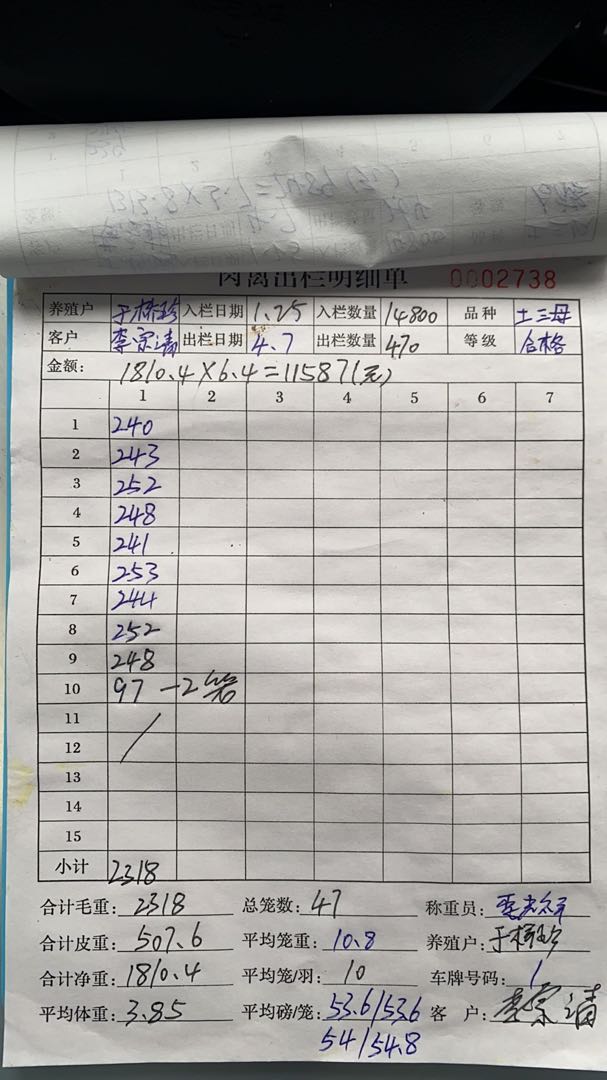 肉禽出栏明细单 0002738
养殖户 于栋珍 入栏日期 1.25 入栏数量 14800 品种 土三母
客户 李宗清 出栏日期 4.7 出栏数量 470 等级 合格
金额: 1810.4×6.4=11587(元)
1 2 3 4 5 6 7
1 240
2 243
3 252
4 248
5 241
6 253
7 244
8 252
9 248
10 97 -2笼
11
12
13
14
15
小计 2318
合计毛重: 2318 总笼数: 47 称重员:
合计皮重: 507.6 平均笼重: 10.8 养殖户: 于栋珍
合计净重: 1810.4 平均笼/羽: 10 车牌号码: 1
平均体重: 3.85 平均磅/笼: 53.6/53.6 客户: 李宗清
54/54.8